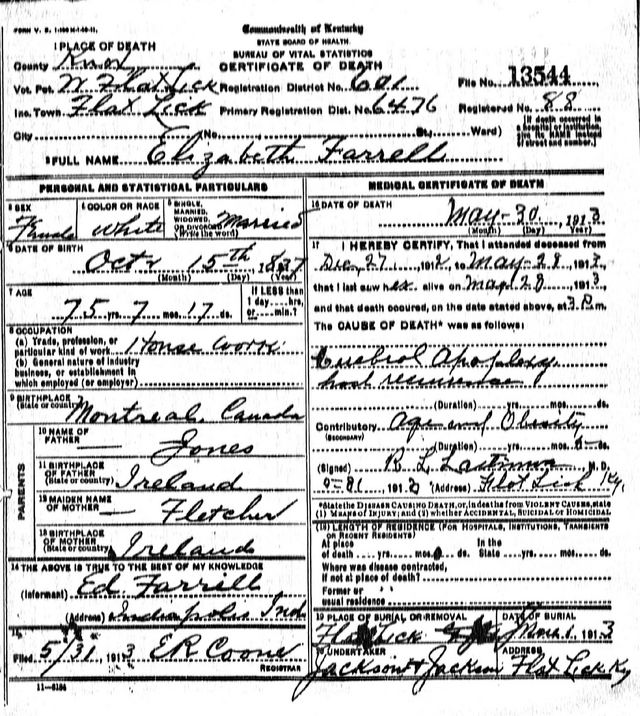 Commonwealth of Kentucky
STATE BOARD OF HEALTH.
BUREAU OF VITAL STATISTICS
CERTIFICATE OF DEATH
1 PLACE OF DEATH
County Knox
Vot. Pct. W Flat Lick Registration District No. 601 File No. 13544
Inc. Town Flat Lick Primary Registration Dist. No. 6476 Registered No. 88
City (No. St., Ward)
[If death occurred in a hospital or institution, give its NAME instead of street and number.]
2 FULL NAME Elizabeth Farrell
PERSONAL AND STATISTICAL PARTICULARS
3 SEX Female
4 COLOR OR RACE White
5 SINGLE, MARRIED, WIDOWED, OR DIVORCED (Write the word) Married
6 DATE OF BIRTH
Oct 15th, 1837
(Month) (Day) (Year)
7 AGE
75 yrs. 7 mos. 17 ds.
If LESS than
1 day....hrs.
or....min.?
8 OCCUPATION
(a) Trade, profession, or
particular kind of work House work
(b) General nature of industry
business, or establishment in
which employed (or employer)
9 BIRTHPLACE
(State or country) Montreal, Canada
PARENTS
10 NAME OF
FATHER — Jones
11 BIRTHPLACE
OF FATHER
(State or country) Ireland
12 MAIDEN NAME
OF MOTHER — Fletcher
13 BIRTHPLACE
OF MOTHER
(State or country) Ireland
14 THE ABOVE IS TRUE TO THE BEST OF MY KNOWLEDGE
(Informant) Ed Farrell
(Address) Ind
15
Filed 5/31, 1913 ER Coone
REGISTRAR
11-6184
MEDICAL CERTIFICATE OF DEATH
16 DATE OF DEATH
May-30, 1913
(Month) (Day) (Year)
17 I HEREBY CERTIFY, That I attended deceased from
Dec, 27, 1912, to May-28, 1913,
that I last saw her alive on May 28, 1913,
and that death occured, on the date stated above, at 3 P.m.
The CAUSE OF DEATH* was as follows:
Cerebral Apoplexy
(Duration) yrs. mos. ds.
Contributory Age and Obesity
(SECONDARY)
(Duration) yrs. mos. ds.
(Signed) R. L. M. D.
1913 (Address) Flat Lick Ky.
*State the DISEASE CAUSING DEATH, or, in deaths from VIOLENT CAUSES, state
(1) MEANS OF INJURY; and (2) whether ACCIDENTAL, SUICIDAL or HOMICIDAL
(18) LENGTH OF RESIDENCE (FOR HOSPITALS, INSTITUTIONS, TRANSIENTS
OR RECENT RESIDENTS)
At place In the
of death....yrs....mos....ds. State....yrs....mos....ds.
Where was disease contracted,
if not at place of death?
Former or
usual residence
19 PLACE OF BURIAL OR REMOVAL DATE OF BURIAL
Flat Lick 1, 1913
20 UNDERTAKER ADDRESS
Jackson & Jackson Flat Lick Ky